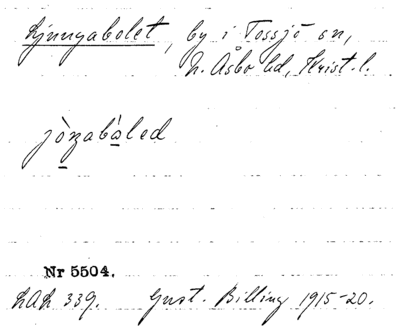 Ljungabolet, by i Tossjö sn,
N. Åsbo hd, Krist. l.
jò̱ŋabà̱led
Nr 5504.
LAL 339. Gust. Billing 1915-20.